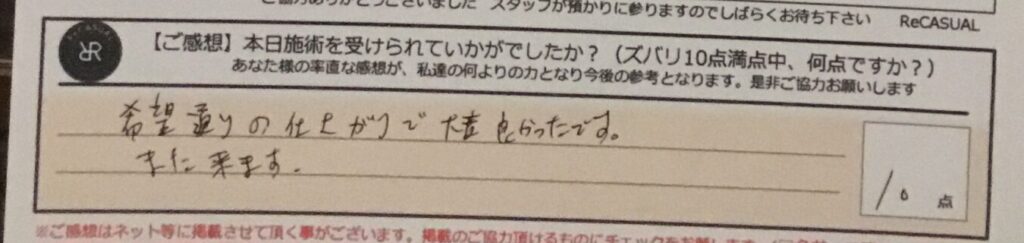 ご協力ありがとうございました スタッフが預かりに参りますのでしばらくお待ち下さい ReCASUAL
【ご感想】本日施術を受けられていかがでしたか？（ズバリ10点満点中、何点ですか？）
あなた様の率直な感想が、私達の何よりの力となり今後の参考となります。是非ご協力お願いします
希望通りの仕上がりで大変良かったです。
また来ます。
10点
※ご感想はネット等に掲載させて頂く事がございます。掲載のご協力頂けるものにチェックをお願します